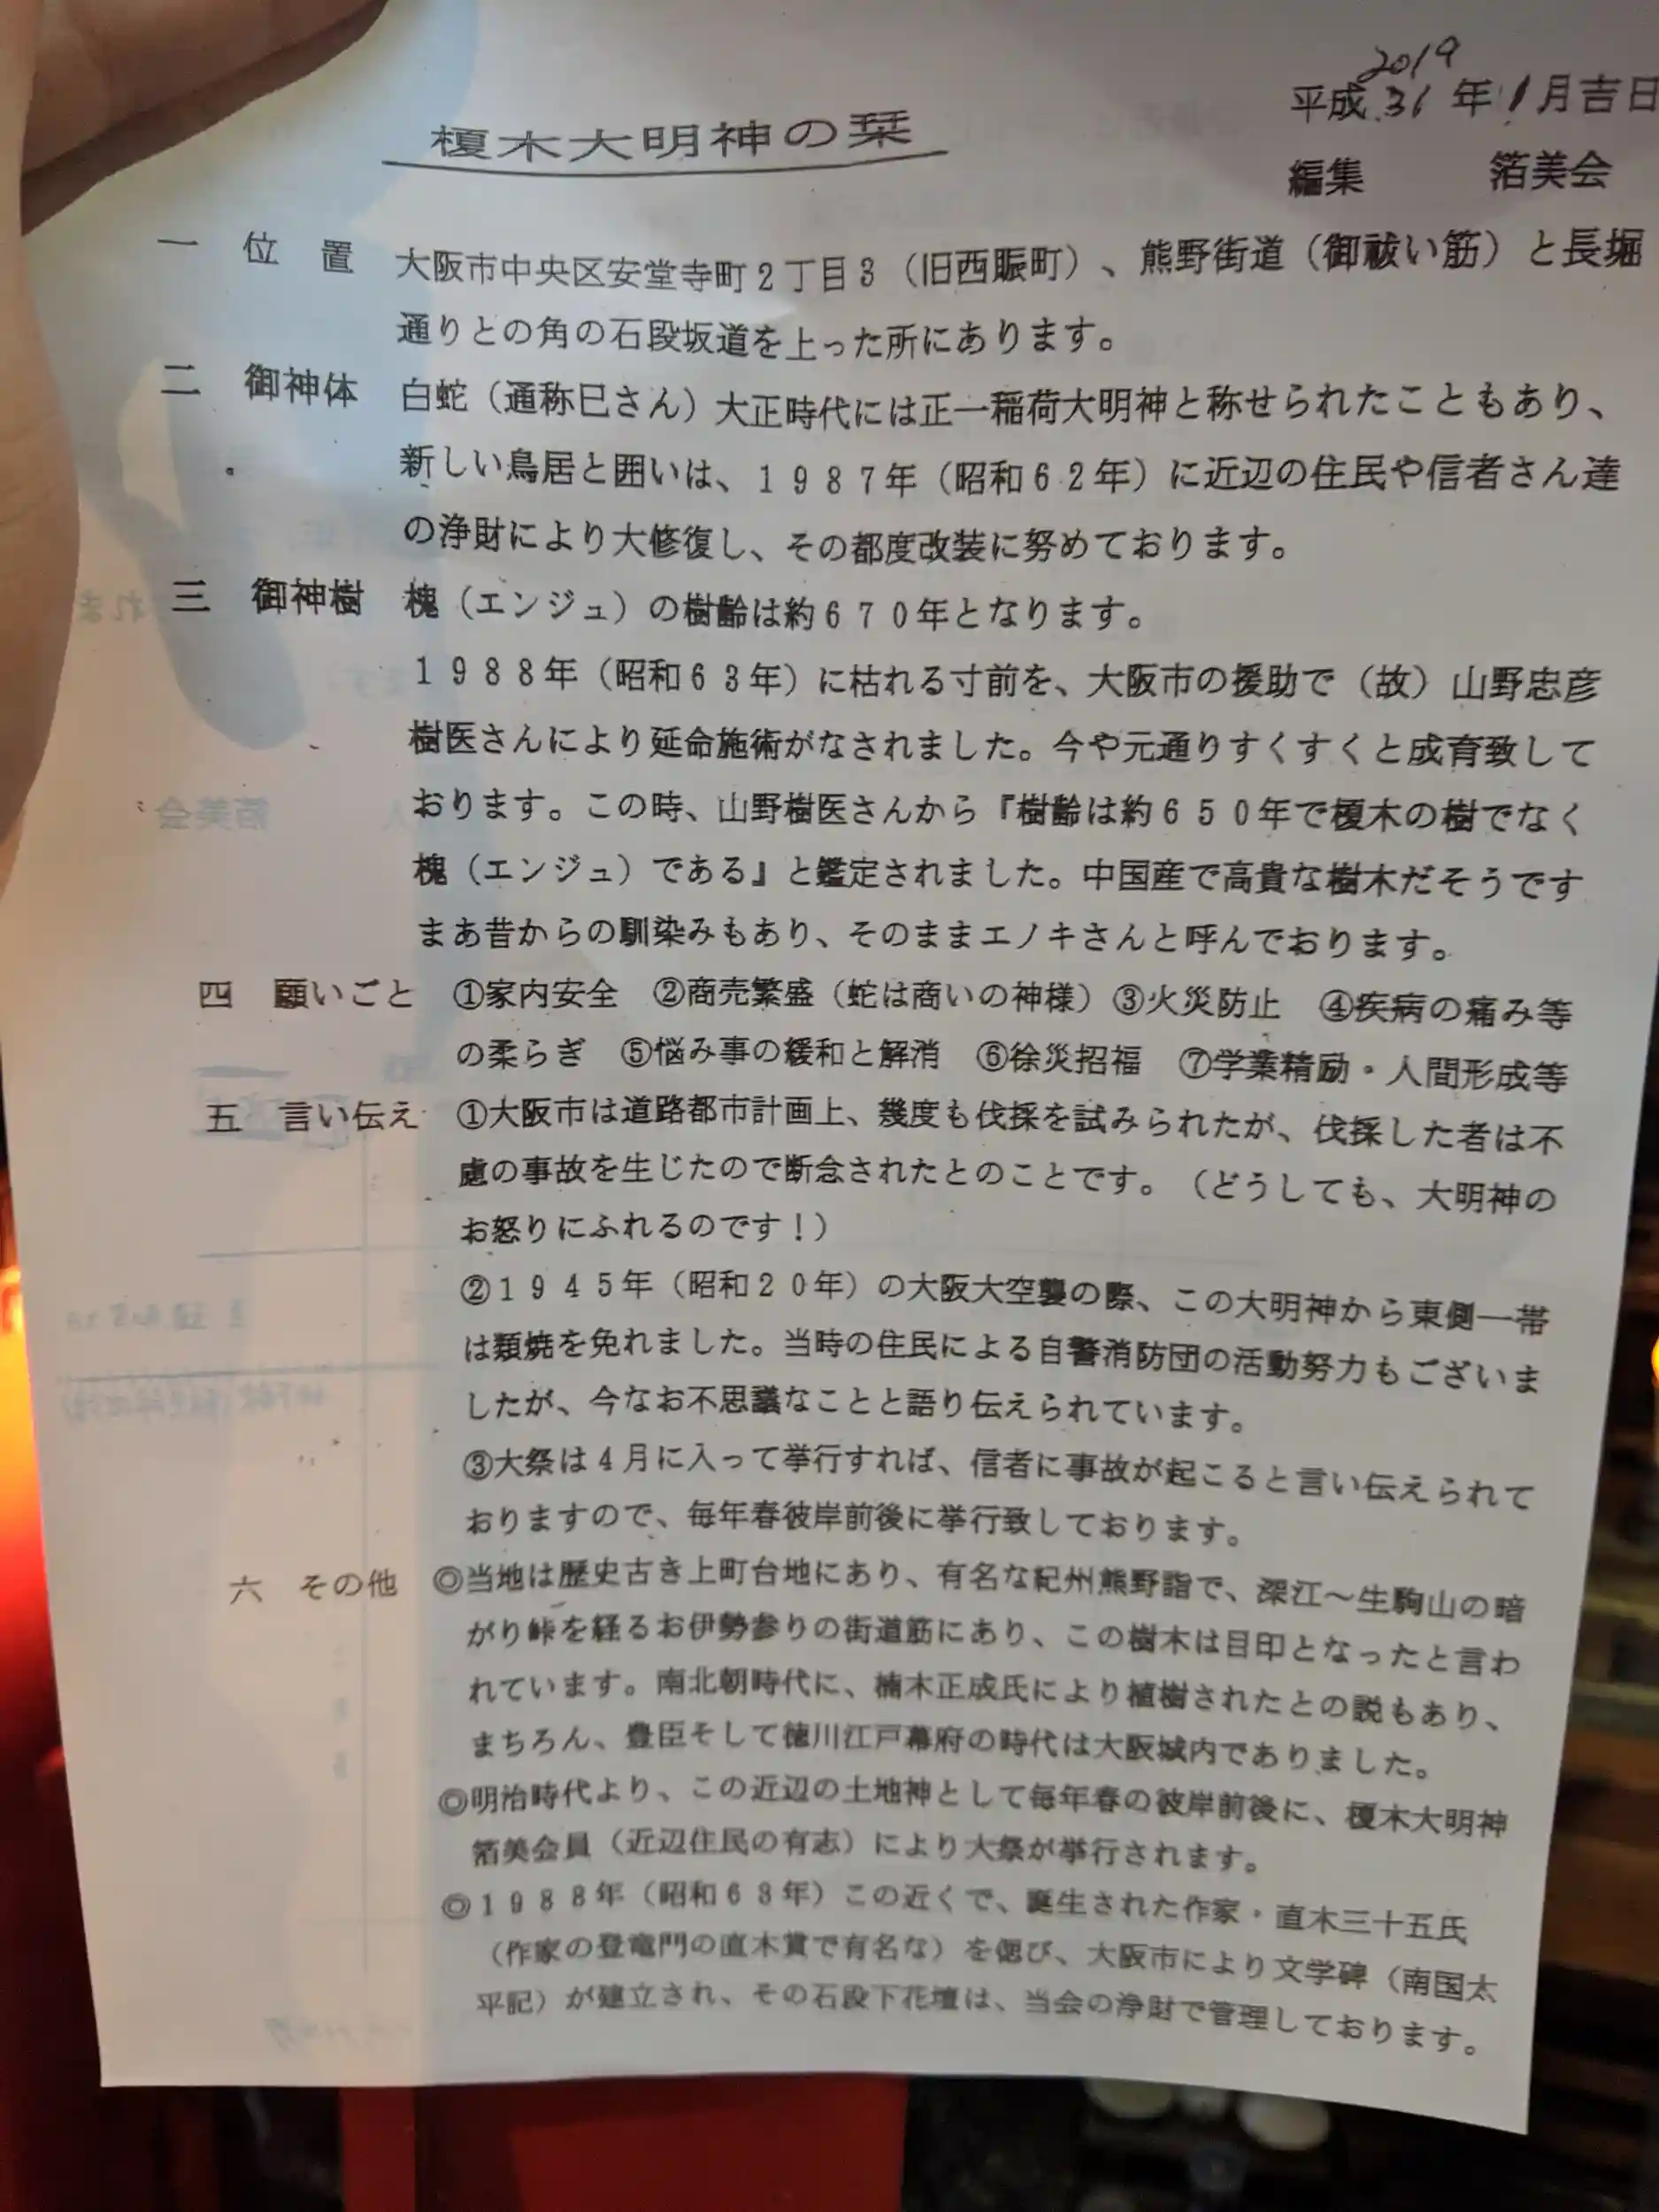 2019
平成31年1月吉日
榎木大明神の栞
編集 箔美会
一 位 置 大阪市中央区安堂寺町2丁目3（旧西賑町）、熊野街道（御祓い筋）と長堀
通りとの角の石段坂道を上った所にあります。
二 御神体 白蛇（通称巳さん）大正時代には正一稲荷大明神と称せられたこともあり、
新しい鳥居と囲いは、1987年（昭和62年）に近辺の住民や信者さん達
の浄財により大修復し、その都度改装に努めております。
三 御神樹 槐（エンジュ）の樹齢は約670年となります。
1988年（昭和63年）に枯れる寸前を、大阪市の援助で（故）山野忠彦
樹医さんにより延命施術がなされました。今や元通りすくすくと成育致して
おります。この時、山野樹医さんから『樹齢は約650年で榎木の樹でなく
槐（エンジュ）である』と鑑定されました。中国産で高貴な樹木だそうです
まあ昔からの馴染みもあり、そのままエノキさんと呼んでおります。
四 願いごと ①家内安全 ②商売繁盛（蛇は商いの神様）③火災防止 ④疾病の痛み等
の柔らぎ ⑤悩み事の緩和と解消 ⑥徐災招福 ⑦学業精励・人間形成等
五 言い伝え ①大阪市は道路都市計画上、幾度も伐採を試みられたが、伐採した者は不
慮の事故を生じたので断念されたとのことです。（どうしても、大明神の
お怒りにふれるのです！）
②1945年（昭和20年）の大阪大空襲の際、この大明神から東側一帯
は類焼を免れました。当時の住民による自警消防団の活動努力もございま
したが、今なお不思議なことと語り伝えられています。
③大祭は4月に入って挙行すれば、信者に事故が起こると言い伝えられて
おりますので、毎年春彼岸前後に挙行致しております。
六 その他 ◎当地は歴史古き上町台地にあり、有名な紀州熊野詣で、深江～生駒山の暗
がり峠を経るお伊勢参りの街道筋にあり、この樹木は目印となったと言わ
れています。南北朝時代に、楠木正成氏により植樹されたとの説もあり、
まちろん、豊臣そして徳川江戸幕府の時代は大阪城内でありました。
◎明治時代より、この近辺の土地神として毎年春の彼岸前後に、榎木大明神
箔美会員（近辺住民の有志）により大祭が挙行されます。
◎1988年（昭和63年）この近くで、誕生された作家・直木三十五氏
（作家の登竜門の直木賞で有名な）を偲び、大阪市により文学碑（南国太
平記）が建立され、その石段下花壇は、当会の浄財で管理しております。